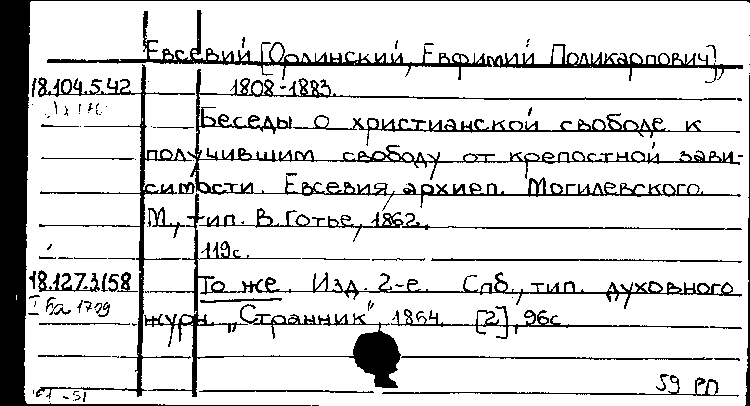 Евсевий [Орлинский, Евфимий Поликарпович],
18.104.5.42 1808-1883.
Беседы о христианской свободе к
получившим свободу от крепостной зави-
симости. Евсевия, архиеп. Могилевского.
М., тип. В. Готье, 1862.
119с.
18.127.3.158 То же. Изд. 2-е. Спб., тип. духовного
I Ба 1709 журн. „Странник", 1864. [2], 96с.
59 РП